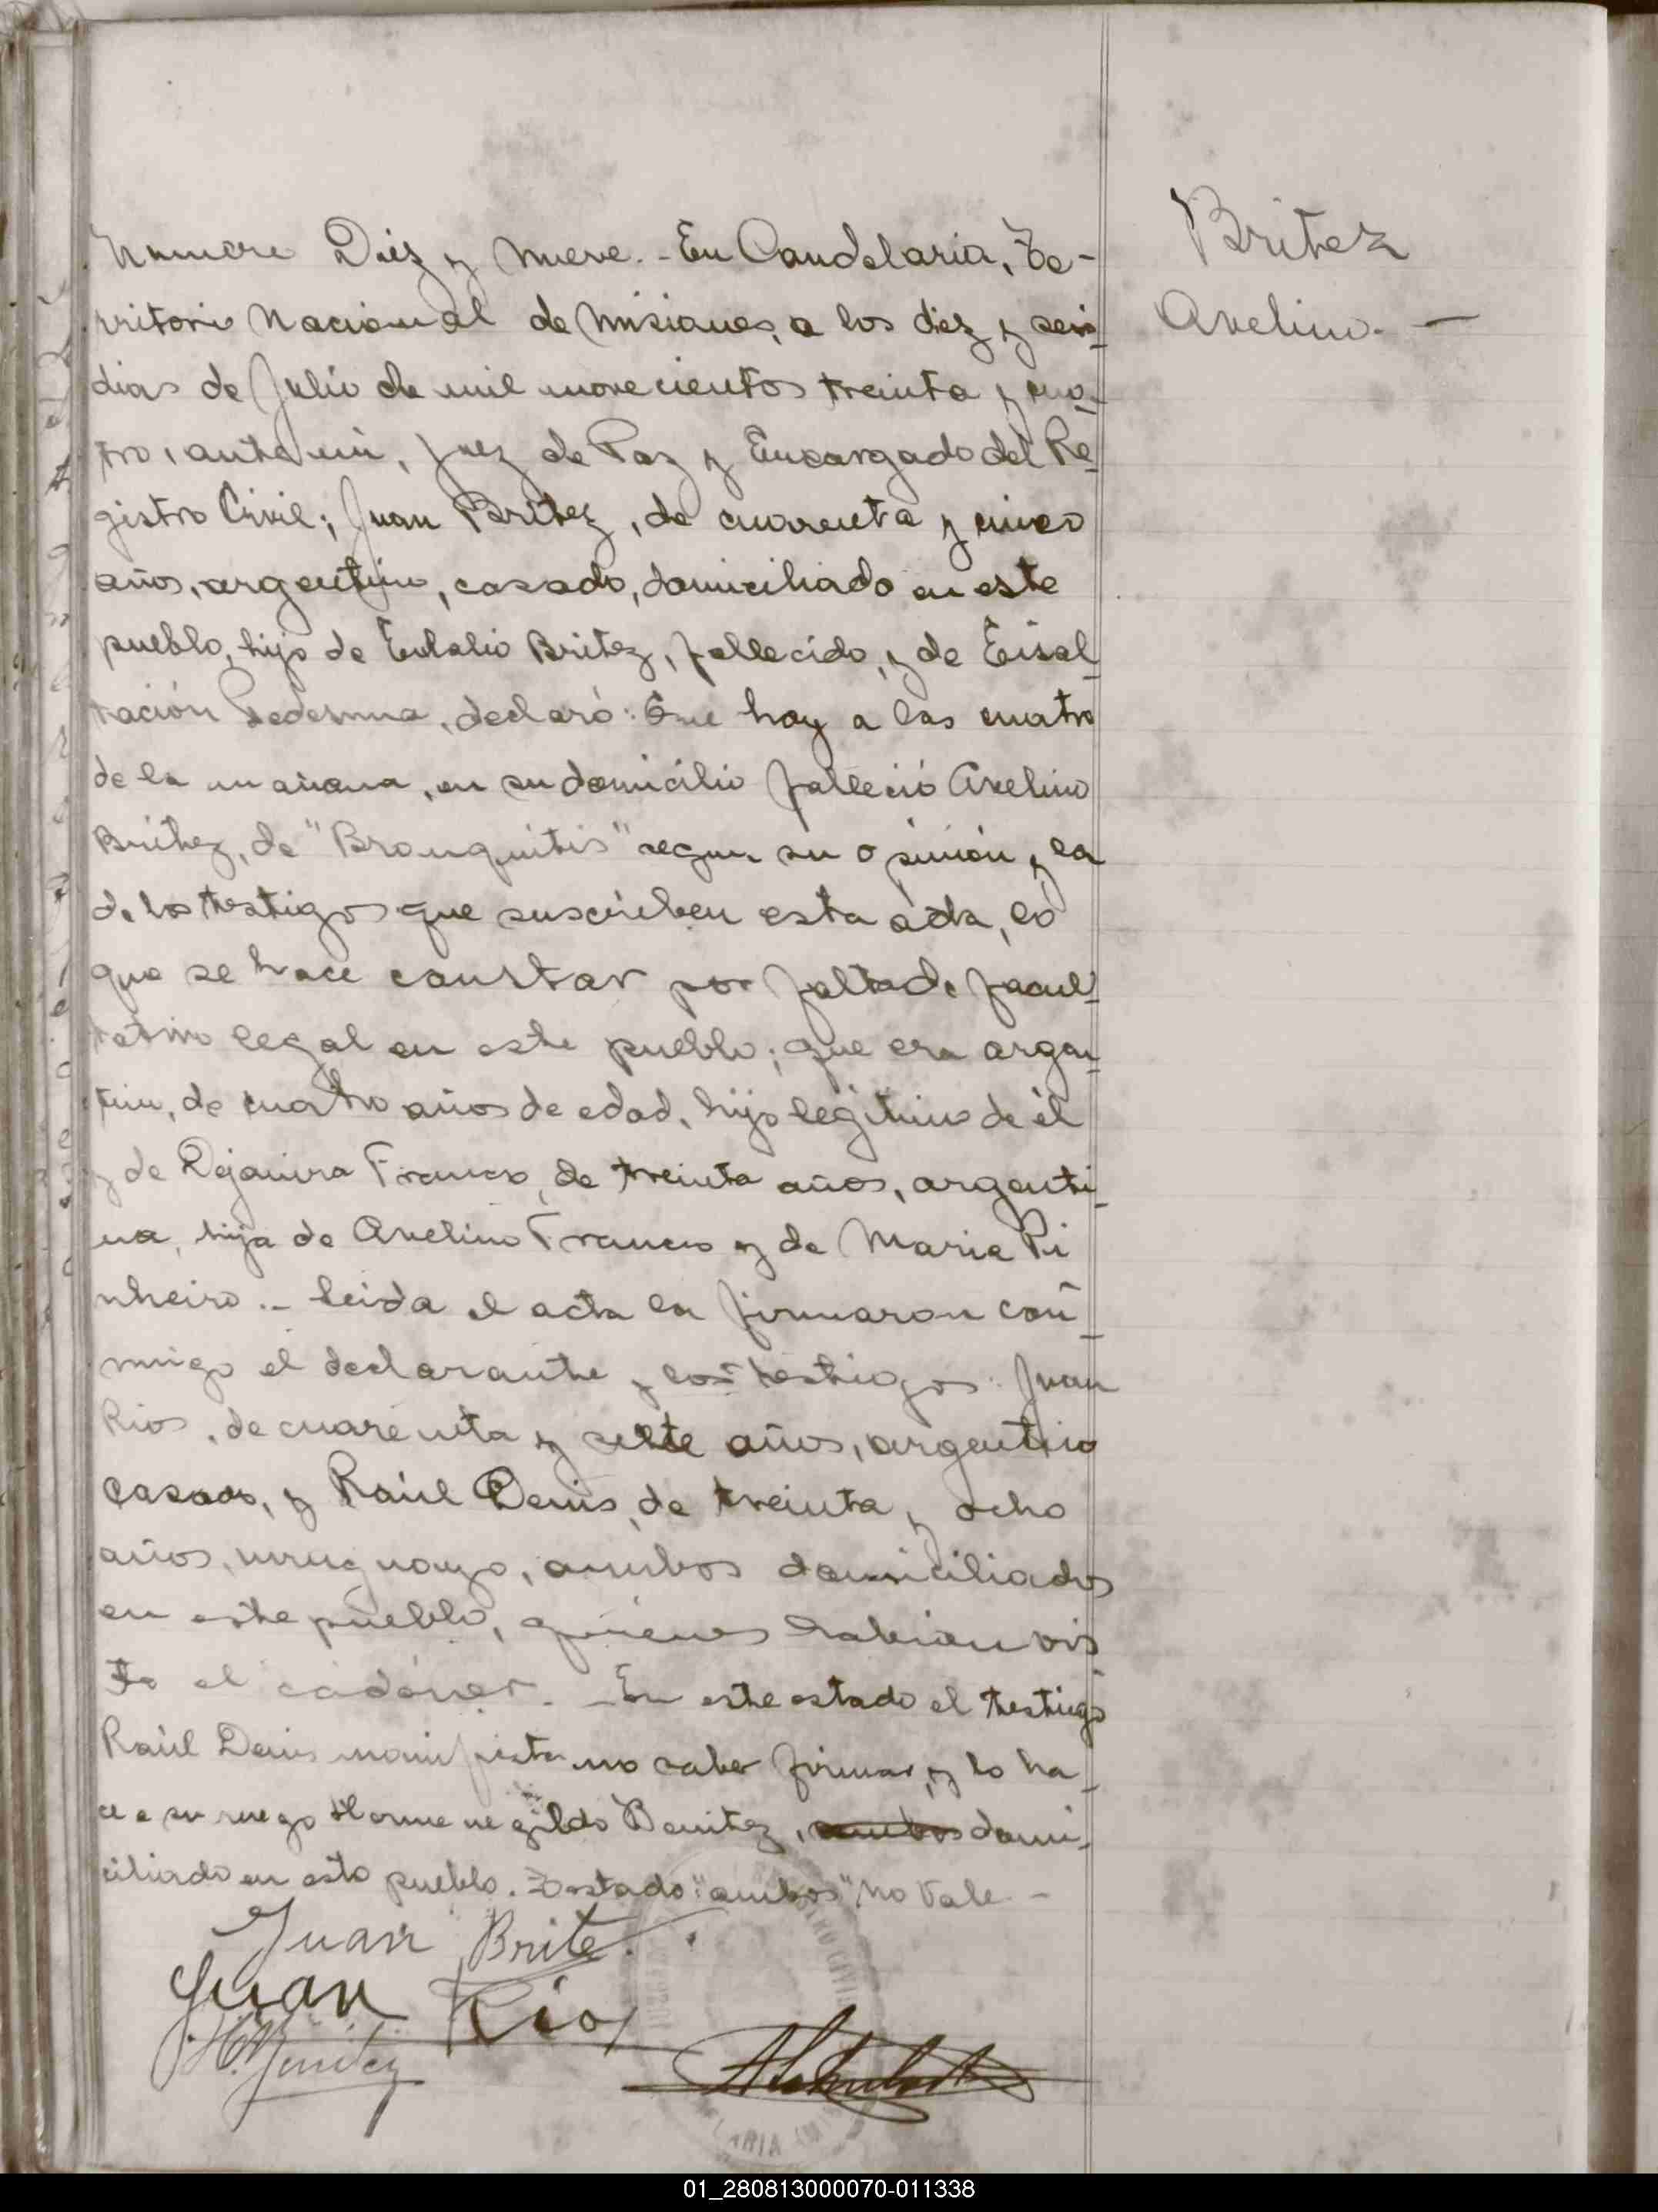 Numero Diez y nueve.- En Candelaria, Te-
rritorio Nacional de Misiones, a los diez y seis
dias de Julio de mil novecientos treinta y cua-
tro, ante mi, Juez de Paz y Encargado del Re-
gistro Civil; Juan Britez, de cuarenta y cinco
años, argentino, casado, domiciliado en este
pueblo, hijo de Eulalio Britez, fallecido, y de Eisal-
tación Ledesma, declaró: Que hoy a las cuatro
de la mañana, en su domicilio falleció Avelino
Britez, de "Bronquitis" segun su opinión y la
de los testigos que suscriben esta acta, lo
que se hace constar por falta de facul-
tativo legal en este pueblo; que era argen-
tino, de cuatro años de edad, hijo legitimo de él
y de Dejanira Franco, de treinta años, argenti-
na, hija de Avelino Franco y de Maria Pi
nheiro.- Leida el acta la firmaron con-
migo el declarante y los testigos: Juan
Rios, de cuarenta y siete años, argentino
casado, y Raúl Denis, de treinta y ocho
años, uruguayo, ambos domiciliados
en este pueblo, quienes habian vis
to el cadáver. - En este estado el testigo
Raúl Denis manifiesta no saber firmar, y lo ha-
ce a su ruego Hormenegildo Benitez, ambos domi-
ciliado en esto pueblo. Testado: "ambos" No Vale -
Juan Brite
Juan Rios
H. Benitez
Britez
Avelino. -
01_280813000070-011338